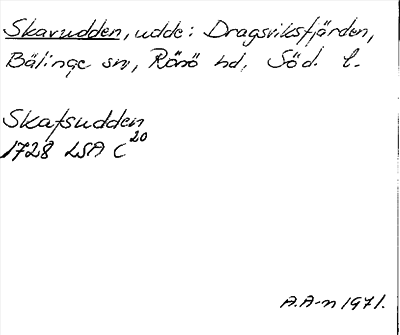 Skarudden, udde: Dragsviksfjärden,
Bälinge sn, Rönö hd, Söd. l.
Skafsudden
1728 LSA C 20
A.A-n 1971.